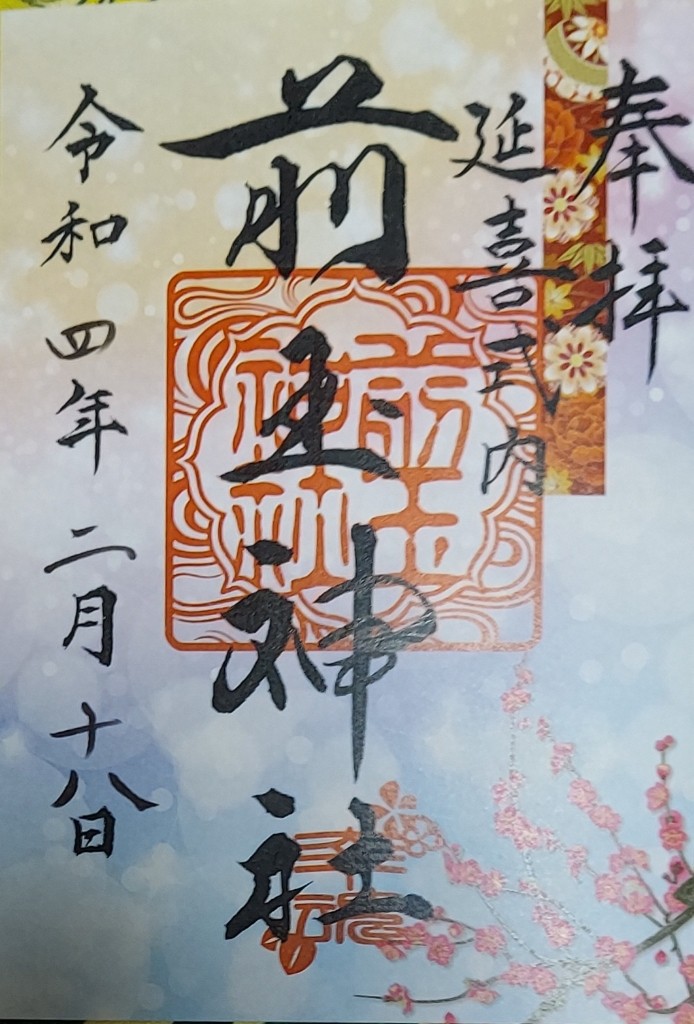 奉拝
延喜式内
前玉神社
前玉神社
令和四年二月十八日